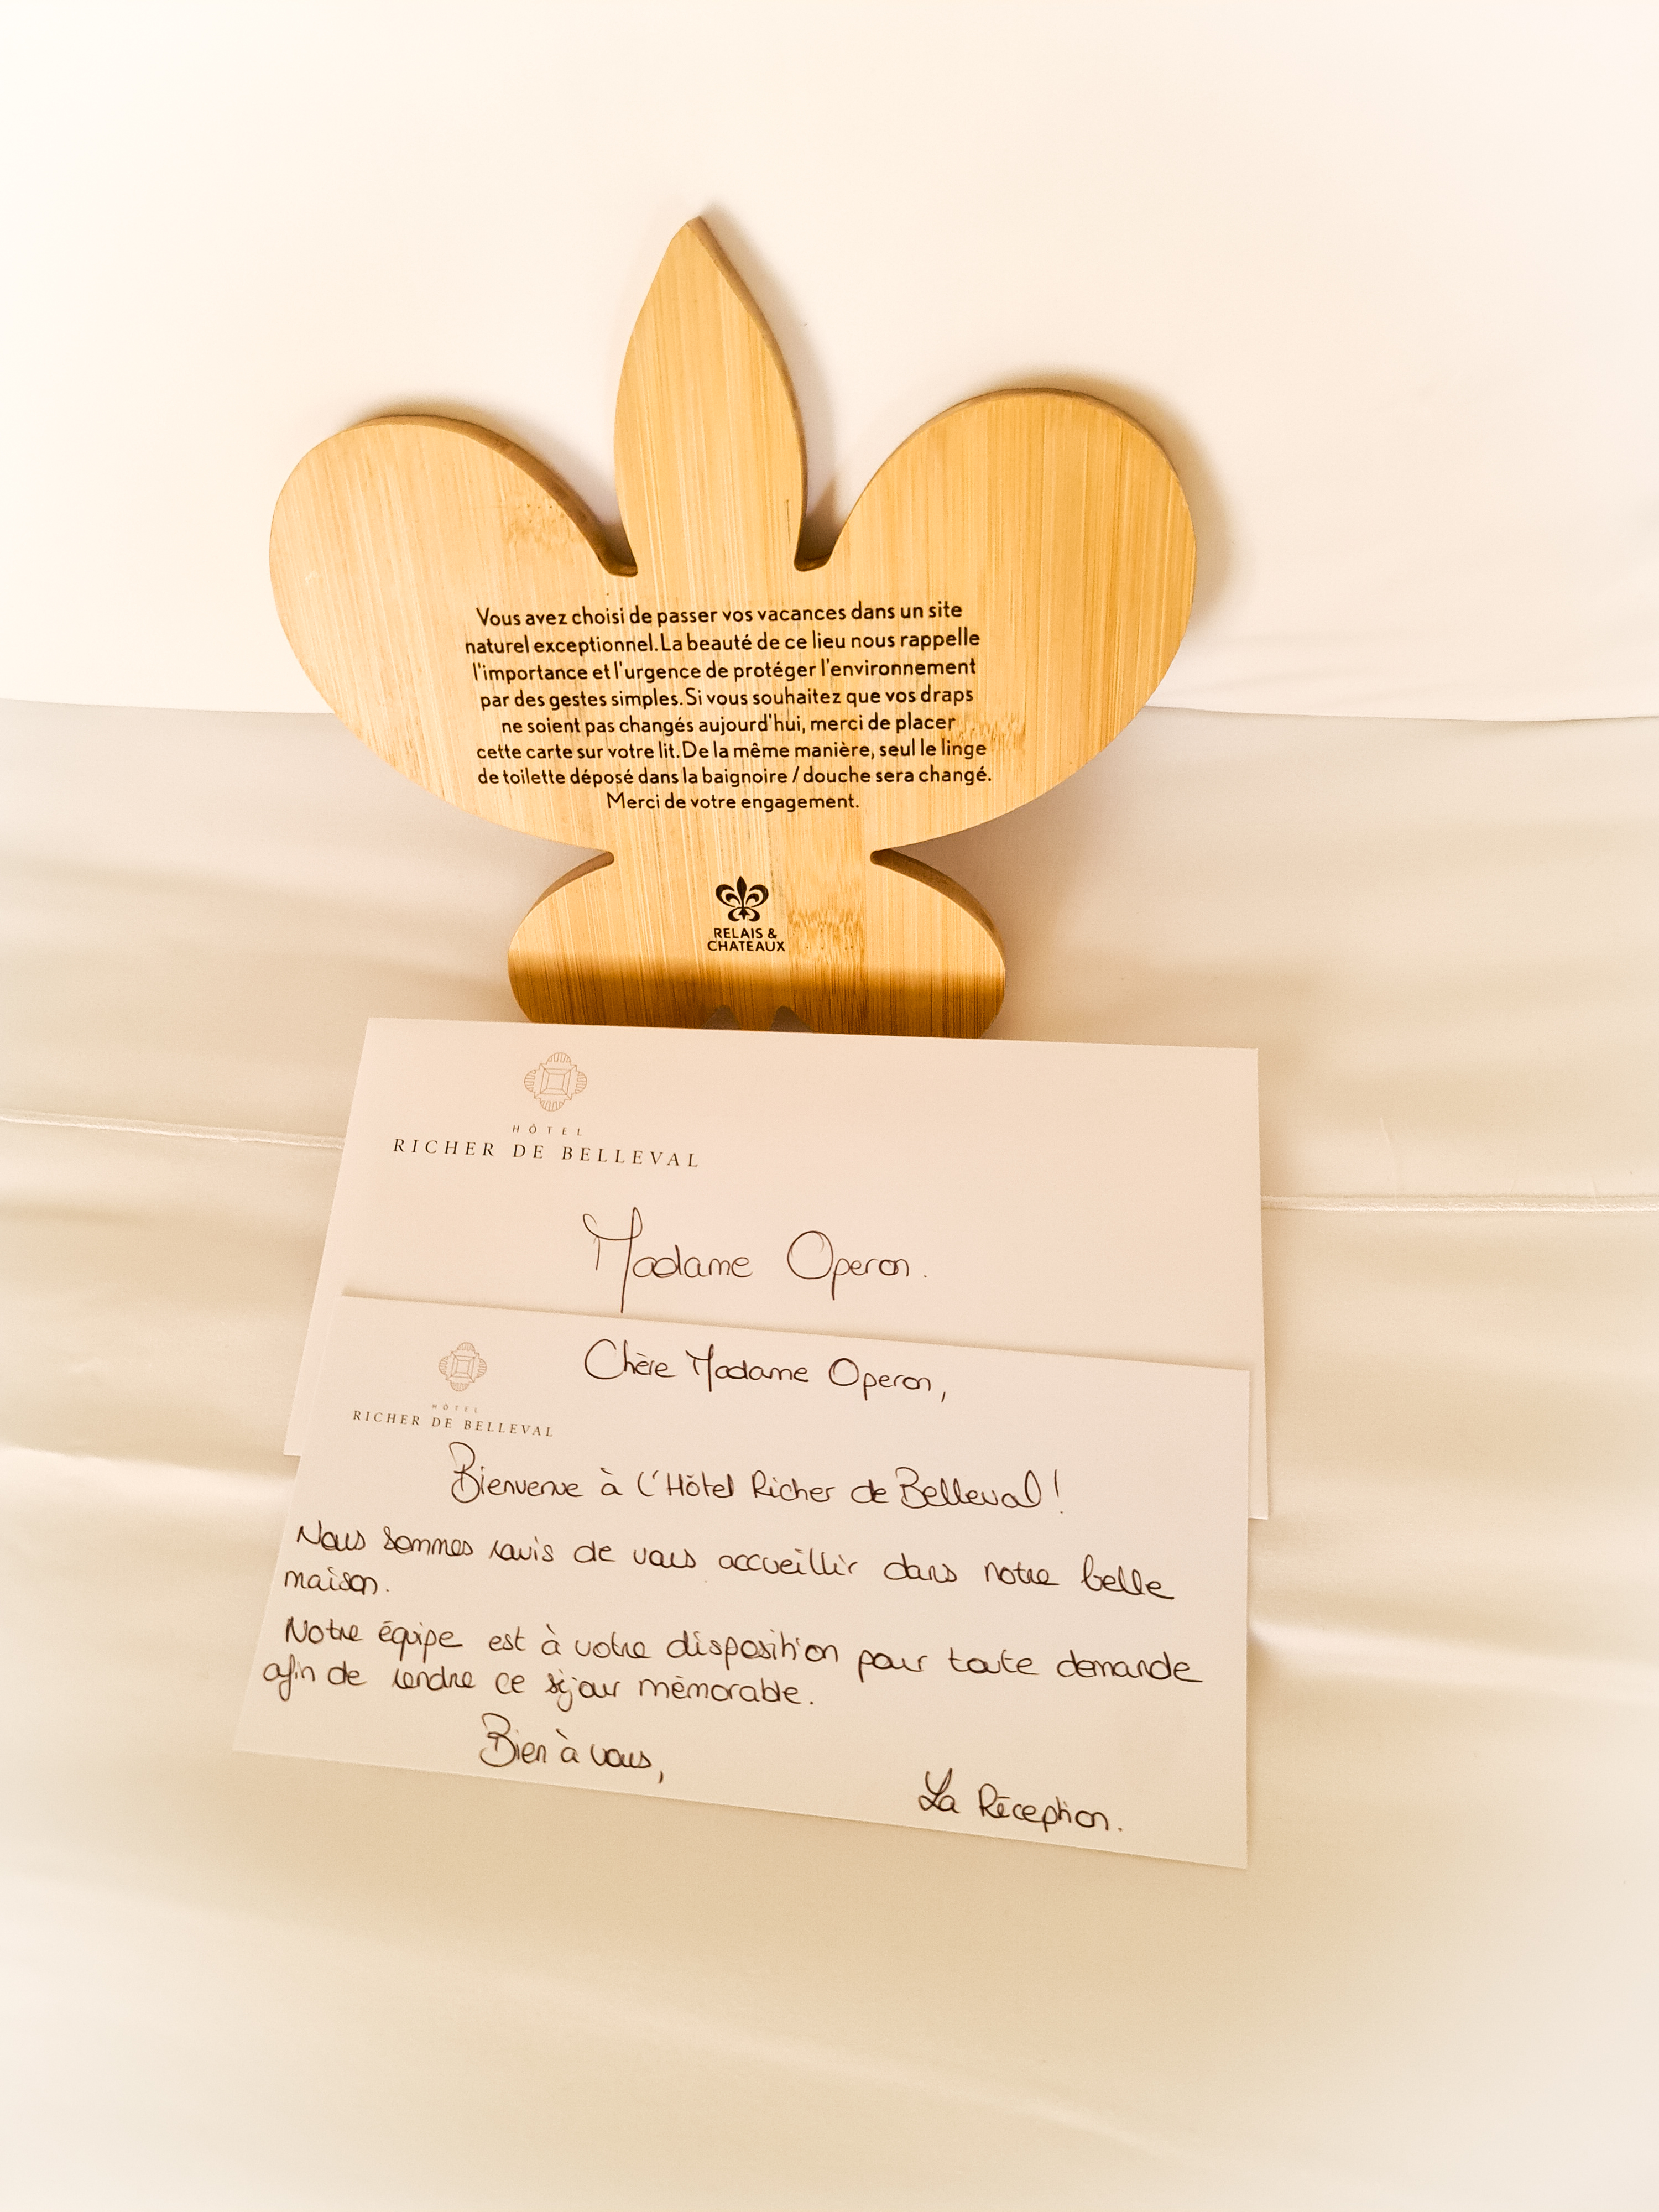 Vous avez choisi de passer vos vacances dans un site
naturel exceptionnel. La beauté de ce lieu nous rappelle
l'importance et l'urgence de protéger l'environnement
par des gestes simples. Si vous souhaitez que vos draps
ne soient pas changés aujourd'hui, merci de placer
cette carte sur votre lit. De la même manière, seul le linge
de toilette déposé dans la baignoire / douche sera changé.
Merci de votre engagement.
RELAIS &
CHATEAUX
HÔTEL
RICHER DE BELLEVAL
Madame Operon.
HÔTEL
RICHER DE BELLEVAL
Chère Madame Operon,
Bienvenue à l'Hôtel Richer de Belleval !
Nous sommes ravis de vous accueillir dans notre belle
maison.
Notre équipe est à votre disposition pour toute demande
afin de rendre ce séjour mémorable.
Bien à vous,
La Réception.